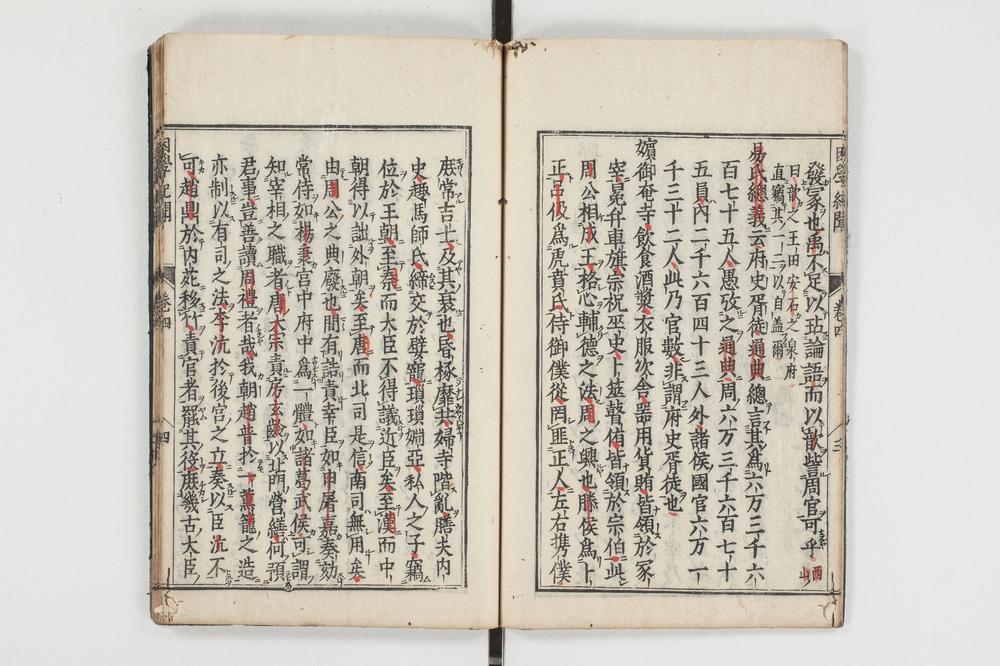 困學紀聞 卷四 三
發冢也禹不足以玷論語而以歆訾周官可乎
曰歆之王田安石之泉府
直竊其一二以自蓋爾
易氏總義云府史胥徒通典總言其爲六万三千六
百七十五人愚攷之通典周六万三千六百七十
五員內二千六百四十三人外諸侯國官六万一
千三十二人此乃官數非謂府史胥徒也
嬪御奄寺飲食酒漿衣服次舍器用貨賄皆領於冢
宰冕弁車旗宗祝巫史卜筮瞽侑皆領於宗伯此
周公相成王格心輔德之法周之興也滕侯爲卜
正呂伋爲虎賁氏侍御僕從罔匪正人左右携僕
庶常吉士及其衰也昏椓靡共婦寺階亂膳夫內
史趣馬師氏締交於嬖寵瑣瑣婣亞私人之子竊
位於王朝至秦而大臣不得議近臣矣至漢而中
朝得以詘外朝矣至唐而北司是信南司無用矣
由周公之典廢也間有詰責幸臣如申屠嘉奏劾
常侍如楊秉宮中府中爲一體如諸葛武侯可謂
知宰相之職者唐太宗責房玄齡以北門營繕何預
君事豈善讀周禮者哉我朝趙普於一薰籠之造
亦制以有司之法李沆於後宮之立奏以臣沆不
可趙鼎於內苑移竹責官者罷其役庶幾古大臣
困學紀聞 卷四 四